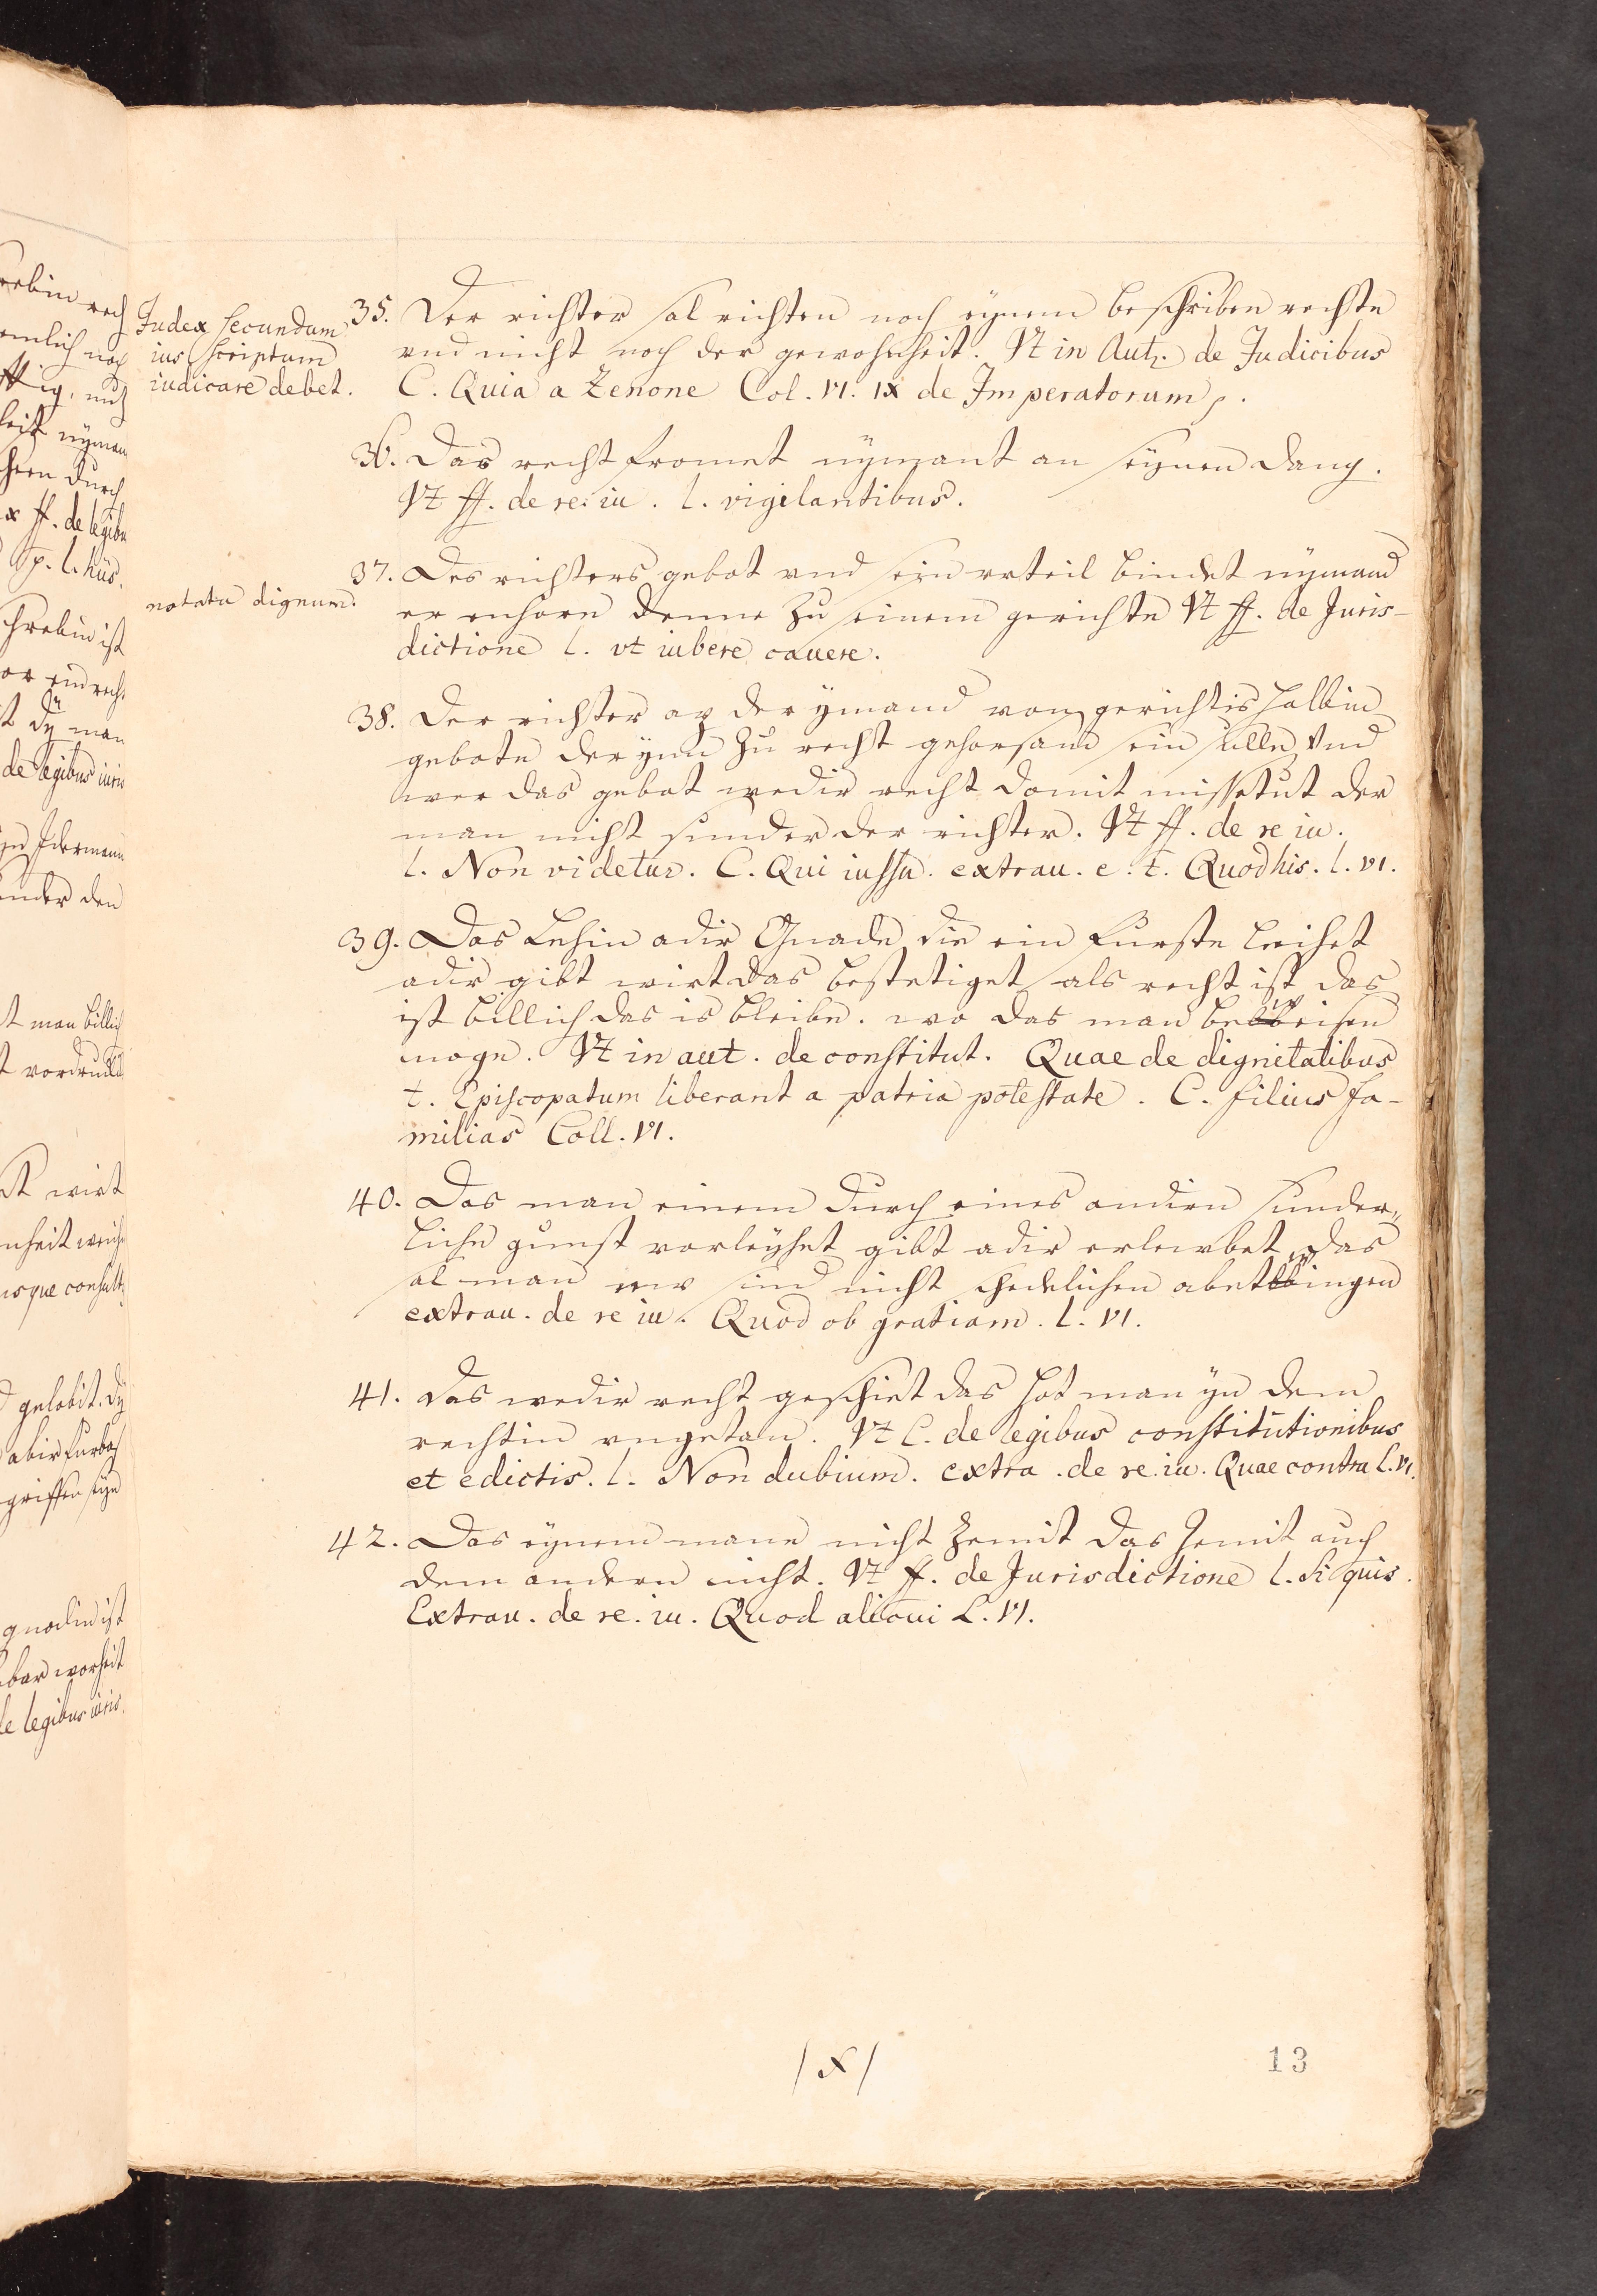 Judex secundum
ius scriptum
iudicare debet.
35. Der richter sal richten noch eynem beschriben rechte
vnd nicht noch der gewohnheit. Vt in Auth. de Judicibus
C. Quia a Zenone Col. VI. IX de Imperatorum
36. Das recht fromet nymant an seynen dang.
Vt ff. de re. iu. l. vigilantibus.
notatu dignum.
37. Des richters gebot vnd sein vrteil bindet nymand
er enhore denne zu seinem gerichte Vt ff. de Juris-
dictione l. vt iubere cauere.
38. Der richter ap der ymand von gerichtis halbin
gebote der ynn zu recht gehorsam sein sulle, vnd
wer das gebot wedir recht domit missetut der
man nicht sunder der richter. Vt ff. de re iu.
l. Non videtur. C. Qui iussu. extrau. e. t. Quod his. l. VI.
39. Das Lehin adir Gnade die ein furste leihet
adir gibt wirt das bestetiget als recht ist das
ist billich das is bleibe. wo das man beweisen
moge. Vt in aut. de constitut. Quae de dignitatibus
t. Episcopatum liberant a patria potestate. C. filius fa-
milias Coll. VI.
40. Das man einem durch eines andirn sunder„
liche gunst vorleyhet gibt adir erlewbet, das
sal man nicht schedelichen abetwingen
extrau. de re iu. Quod ob gratiam. l. VI.
41. Das wedir recht geschiet das hot man yn dem
rechtin vngetan. Vt C. de legibus constitutionibus
et edictis. l. Non dubium. extra. de re. iu. Quae contra l. VI.
42. Das eynem manne nicht zemit das zemit auch
dem andern nicht. Vt ff. de Jurisdictione l. Si quis.
Extrau. de re. iu. Quod alicui L. VI.
13